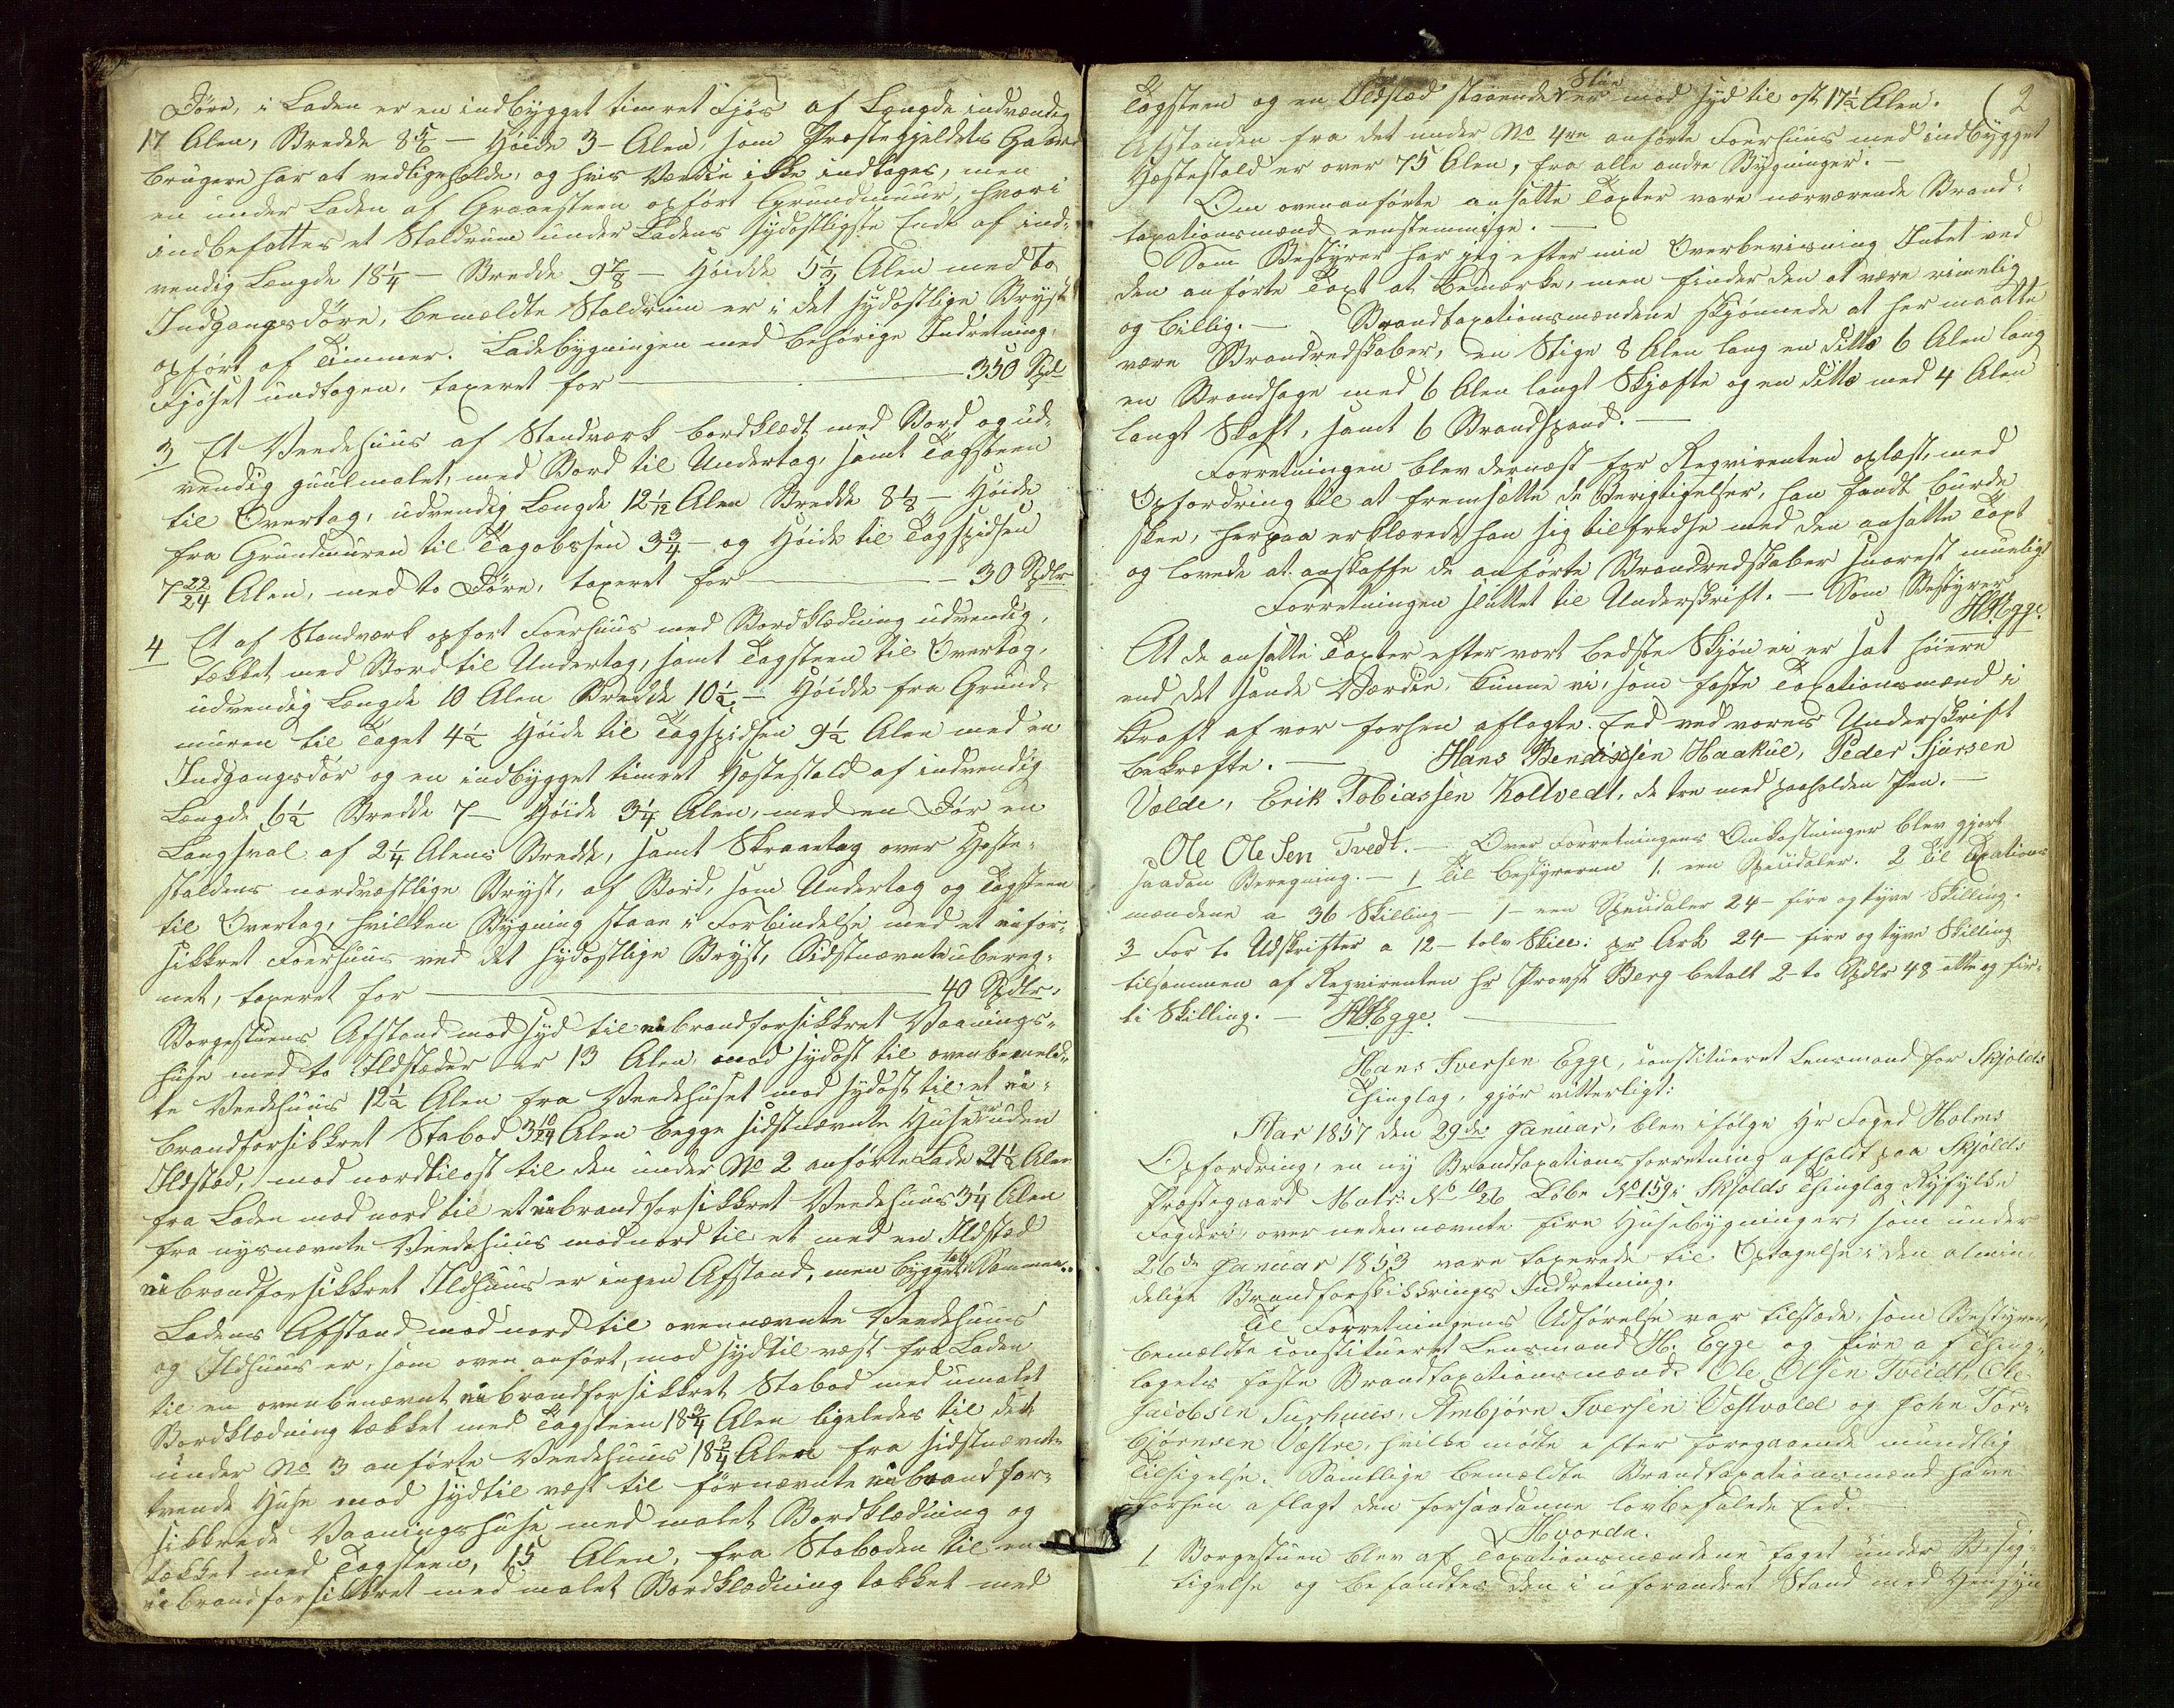 Døre, i Laden er en indbygget timret Fjøs af Længde indvændig
17 Alen, Bredde 8 5/6 – Høide 3 – Alen, som Præstegjeldets Gaard-
brugere har at vedligeholde, og hvis Værdie ikke indtages, men
en under Laden af Graaesteen opført Grundmuur, hvori
indbefattes et Staldrum under Ladens sydostligste Ende af ind-
vendig Længde 18 1/4 – Bredde 9 7/8 – Høidde 5 1/3 Alen med to
Indgangsdøre, bemældte Staldrum er i det sydostlige Bryst
opført af Timmer. Ladebygningen med behørige Indretning,
Fjøset undtagen, taxeret for — 350 Spd
3 Et Veedehuus af Standværk bordklædt med Bord og ud-
vendig guulmalet, med Bord til Undertag, samt Tagsteen
til Overtag, udvendig Længde 12 1/12 Alen Bredde 8 1/8 – Høide
fra Grundmuren til Tagobssen 3 3/4 – og Høide til Tagspidsen
7 22/24 Alen, med to Døre, taxeret for — 30 Spdlr
4 Et af Standværk opført Foerhuus med Bordklædning udvendig,
tækket med Bord til Undertag, samt Tagsteen til Overtag,
udvendig Længde 10 Alen Bredde 10 1/2 – Høidde fra Grund-
muren til Taget 4 1/2 Høide til Tagspidsen 9 1/2 Alen med en
Indgangsdør og en indbygget timret Hæstestald af indvendig
Længde 6 1/2 Bredde 7 – Høide 3 1/4 Alen, med en Dør en
Langsval af 2 1/4 Alens Bredde, samt Skraatag over Hæste-
staldens nordvæstlige Bryst, af Bord, som Undertag og Tagsteen
til Overtag, hvilken Bygning staae i Forbindelse med et uafor-
sikkret Foerhuus ved det sydostlige Bryst, Sidstnævnte ubereg-
net, taxeret for — 40 Spdlr.
Borgestuens Afstand mod syd til ubrandforsikkret Vaanings-
huse med to Ildstæder er 13 Alen mod sydost til ovenbemeld-
te Veedehuus 12 1/2 Alen fra Veedehuset mod sydost til et u-
brandforsikkret Stabod 3 10/24 Alen begge sidstnævnte Huse er uden
Ildstæd, mod nordtilost til den under No 2 anførte Lade 21 1/2 Alen
fra Laden mod nord til et ubrandforsikkret Veedehuus 3 1/4 Alen
fra nysnævnte Veedehuus mod nord til et med en Ildstæd
ubrandforsikkret Ildhuus er ingen Afstand, men bygget Sammen..
Ladens Afstand mod nord til ovennævnte Veedehuus
og Ildhuus er, som oven anført, mod sydtil væst fra Laden
til en ovenbenævnt ubrandforsikkret Stabod med umalet
Bordklædning tækket med Tagsteen 18 3/4 Alen ligeledes til det
under No 3 anførte Veedehuus 18 3/4 Alen fra sidstnævnte
tvende Huse mod sydtil væst til førnævnte ubrandfor-
sikkrede Vaaningshuse med malet Bordklædning og
tækket med Tagsteen, 15 Alen, fra Staboden til en
ubrandforsikkret med malet Bordklædning tækket med
Tagsteen og en Ildstæd staaende Stue er mod syd til ost 17 1/2 Alen. (2
Afstanden fra det under No 4re anførte Foerhuus med indbygget
Hæstestald er over 75 Alen, fra alle andre Bygninger. –
Om ovenanførte ansatte Taxter vare nærværende Brand-
taxationsmænd eenstemmige. –
Som Bestyrer har jeg efter min Overbeviisning Intet ved
den anførte Taxt at bemærke, men finder den at være rimelig
og billig. – Brandtaxationsmændene skjønnede at her maatte
være Brandredskaber, en Stige 8 Alen lang en ditto 6 Alen lang
en Brandhage med 6 Alen langt Skjæfte og en ditto med 4 Alen
langt Skaft, samt 6 Brandspand. –
Forretningen blev dernæst for Reqvirenten oplæst, med
Opfordring til at fremsætte de Berigtigelser, han fandt burde
skee, herpaa erklærede han sig tilfredse med den ansatte Taxt
og lovede at anskaffe de anførte Brandredskaber snarest mueligt
Forretningen sluttet til Underskrift. – Som Bestyrer
H. Egge.
At de ansatte Taxter efter vort bedste Skjøn ei er sat høiere
end det sande Værdie, kunne vi, som faste Taxationsmænd i
Kraft af vor forhen aflagte Eed ved vores Underskrift
bekræfte. – Hans Bendixsen Haakul, Peder Sjursen
Valde, Erik Tobiassen Koltvedt, de tre med paaholden Pen. –
Ole Olesen Tvedt. – Over Forretningens Omkostninger blev gjort
saadan Beregning. – 1 Til Bestyreren 1. een Speciedaler. 2 Til Taxations
mændene a 36 Skilling – 1 – een Speciedaler 24 – fire og tyve Skilling.
3 For to Udskrifter a 12 – tolv Skill: pr Ark 24 – fire og tyve Skilling
tilsammen af Reqvirenten hr Provst Berg betalt 2 – to Spdlr 48 otte og fir-
ti Skilling. – H. Egge.
Hans Iversen Egge, constitueret Lensmand for Skjolds
Thinglag, gjør vitterligt:
Aar 1857 den 29de Januar, blev ifølge Hr Foged Holms
Opfordring, en ny Brandtaxationsforretning afholdt paa Skjolds
Præstegaard Matr: No 26 Løbe No 159 i Skjolds Thinglag Ryfylke
Fogderi, over nedennævnte fire Husebygninger, som under
26de Januar 1853 vare taxerede til Optagelse i den almin
delige Brandforsikkrings Indretning.
Til Forretningens Udførelse var tilstæde, som Bestyrer,
bemældte constitueret Lensmand H. Egge og fire af Thing-
lagets faste Brandtaxationsmænd: Ole Olsen Tveidt, Ole
Jacobsen Surhuus, Ambjørn Iversen Væstvold og John Tor-
bjørnsen Væstre, hvilke mødte efter foregaaende mundtlig
Tilsigelse. Samtlige bemældte Brandtaxationsmænd have
forhen aflagt den forsaadanne lovbefalede Eed. –
Hvorda.
1 Borgestuen blev af Taxationsmændene taget under Besig-
tigelse og befandtes den i uforandret Stand med Hensyn